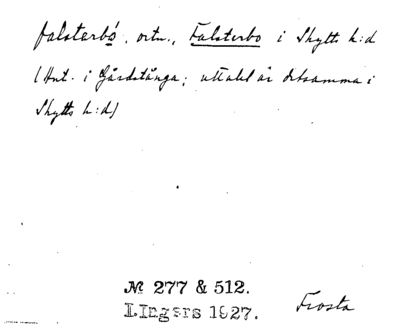 falsterbó, ortn., Falsterbo i Skytts h:d
(Ant. i Gårdstånga; uttalet är detsamma i
Skytts h:d)
№ 277 & 512.
I. Ingers 1927.
Frosta